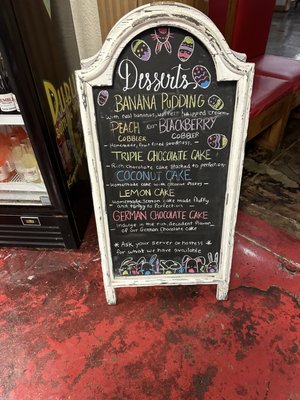 Desserts
BANANA PUDDING
With real bananas, wafers & whipped cream
PEACH or BLACKBERRY
COBBLER COBBLER
Homemade, fruit filled goodness
TRIPLE CHOCOLATE CAKE
Rich chocolate cake stacked to perfection
COCONUT CAKE
Homemade cake with coconut flakes
LEMON CAKE
Homemade lemon cake made fluffy
and tangy to perfection
GERMAN CHOCOLATE CAKE
Indulge in the rich, decadent flavor
of our German Chocolate cake
*Ask your server or hostess *
for what we have available